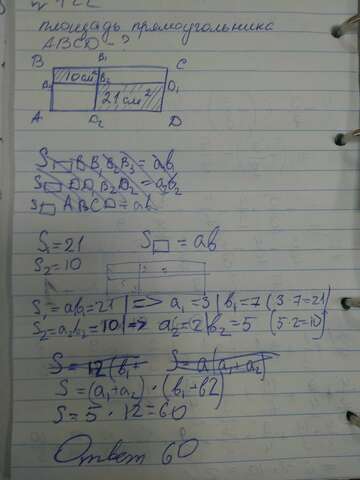 площадь прямоугольника
ABCD - ?
B B₁ C
10 см² B₂
B₃ D₁
21 см²
A D₂ D
S▭ BB₁B₂B₃ = ab₁
S▭ DD₁B₂D₂ = a₂b₂
S▭ ABCD = ab
S₁ = 21 S▭ = ab
S₂ = 10
S₁ = ab₁ = 21 | => a₁ = 3 | b₁ = 7 (3·7=21)
S₂ = a₂b₂ = 10 | => a₂ = 2 | b₂ = 5 (5·2=10)
S = 12(b₁ = S = a(a₁+a₂)
S = (a₁+a₂)·(b₁+b2)
S = 5 · 12 = 60
Ответ 60